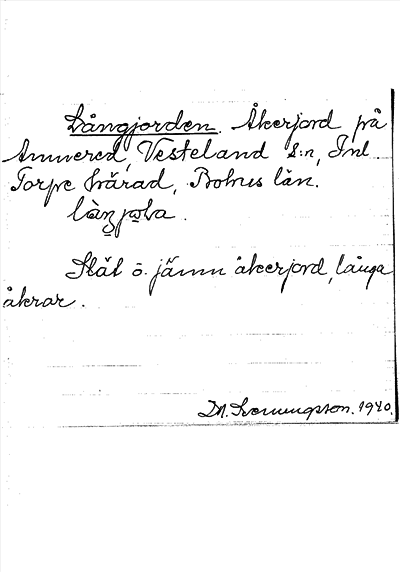 Långjorden. Åkerjord på
Annered, Vesteland s:n, Inl.
Torpe härad, Bohus län.
Slät o. jämn åkerjord, långa
åkrar.
1940.